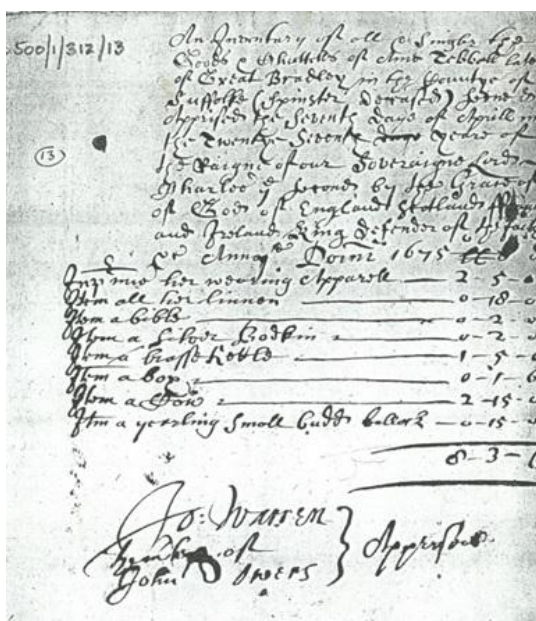 500/1/312/13
An Inventary of all & Singler the
Goods & Chattells of Ann Tebball late
of Great Bradley in the Countye of
Suffolke (Spinster deceased) 
Apprised the Seventh Day of Aprill in
the Twentye Seventh yeare of
the Raigne of our Soveraigne Lord
Charles ye Second by the Grace of
of God of England Scotland
and Ireland King Defender of the faith
Anno Domi 1675
13
her wearing Apparell — 2 - 5 -
Item all her linnen — 0 - 18 -
Item a bible — 0 - 2 -
Item a Silver Bodkin — 0 - 2 -
Item a brasse Kettle — 1 - 5 -
Item a box — 0 - 1 - 6
Item a Cow — 2 - 15 -
Itm a yearling Small budd bullock — 0 - 15 -
8 - 3 -
Jo: Warren
of
John Owers
Apprisors